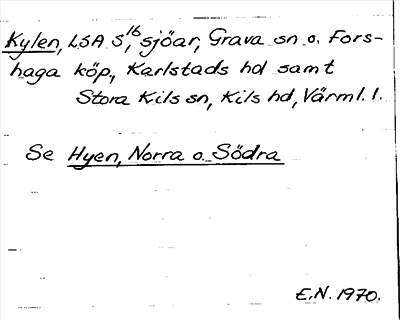 Kylen, LSA S, 16 sjöar, Grava sn o. Fors-
haga köp, Karlstads hd samt
Stora Kils sn, Kils hd, Värml. l.
Se Hyen, Norra o. Södra
E.N. 1970.